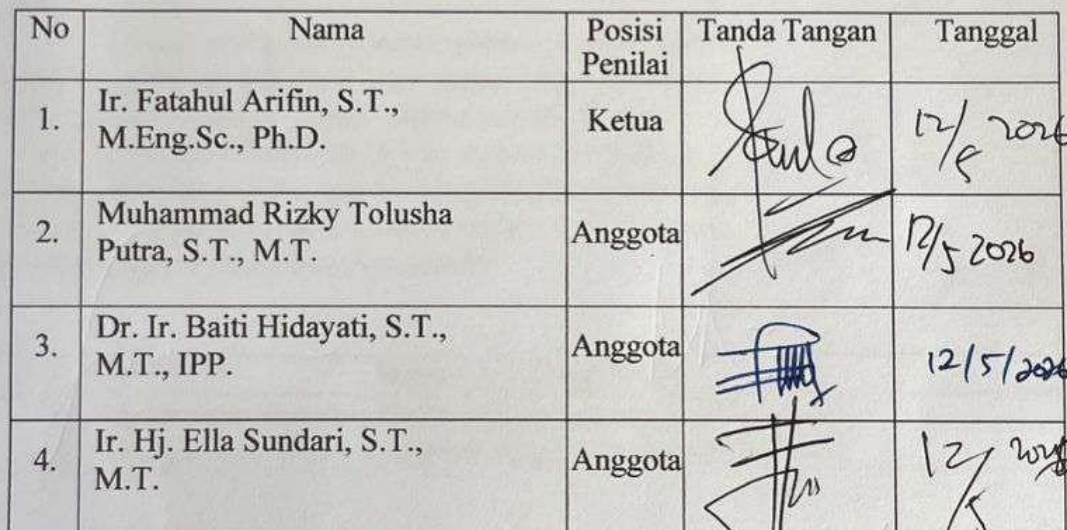 No Nama Posisi Penilai Tanda Tangan Tanggal
1. Ir. Fatahul Arifin, S.T., M.Eng.Sc., Ph.D. Ketua 12/5 2026
2. Muhammad Rizky Tolusha Putra, S.T., M.T. Anggota 12/5 2026
3. Dr. Ir. Baiti Hidayati, S.T., M.T., IPP. Anggota 12/5/2026
4. Ir. Hj. Ella Sundari, S.T., M.T. Anggota 12/5